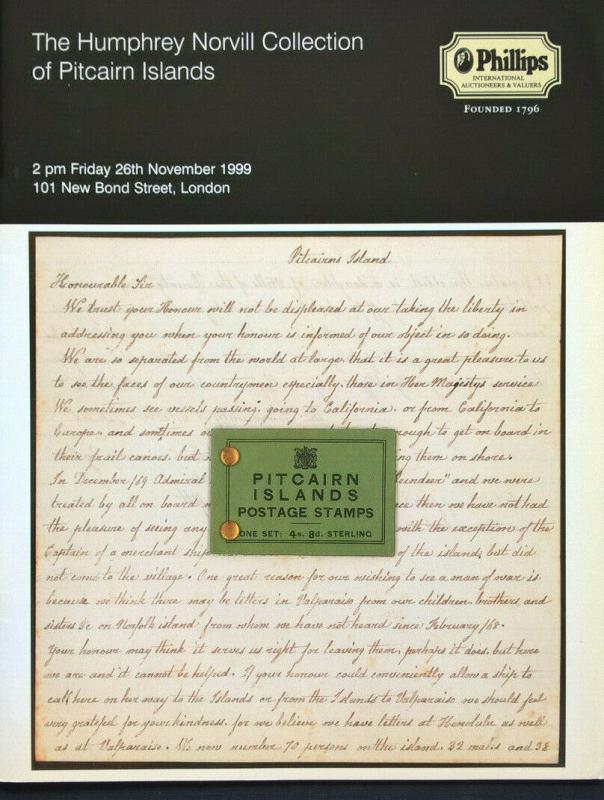 The Humphrey Norvill Collection
of Pitcairn Islands
Phillips
INTERNATIONAL
AUCTIONEERS & VALUERS
FOUNDED 1796
2 pm Friday 26th November 1999
101 New Bond Street, London
Pitcairns Island
Honourable Sir
We trust your Honour will not be displeased at our taking the liberty in
addressing you when your honour is informed of our object in so doing.
We are so separated from the world at large, that it is a great pleasure to us
to see the faces of our countrymen especially, those in Her Majestys service
We sometimes see vessels passing, going to California, or from California to
Europe, and somtimes enough to get on board in
their frail canoes, but ing them on shore.
In December /69 Admiral and we were
treated by all on board ce then we have not had
the pleasure of seing any with the exception of the
Captain of a merchant ship of the island, but did
not come to the village. One great reason for our wishing to see a man of war is
because we think there may be letters in Valparaiso from our children, brothers, and
sisters &c on Norfolk island, from whom we have not heard since February /68.
Your honour may think it serves us right for leaving them, perhaps it does, but here
we are and it cannot be helped. If your honour could conveniently allow a ship to
call here on her way to the Islands or from the Islands to Valparaiso we should feel
very grateful for your kindness, for we believe we have letters at Honolulu as well
as at Valparaiso. We now number 70 persons on the island. 32 males and 38
PITCAIRN
ISLANDS
POSTAGE STAMPS
ONE SET: 4s. 8d. STERLING